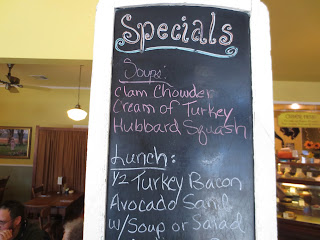 Specials
Soups:
Clam Chowder
Cream of Turkey
Hubbard Squash
Lunch:
1/2 Turkey Bacon
Avocado Sand
w/Soup or Salad